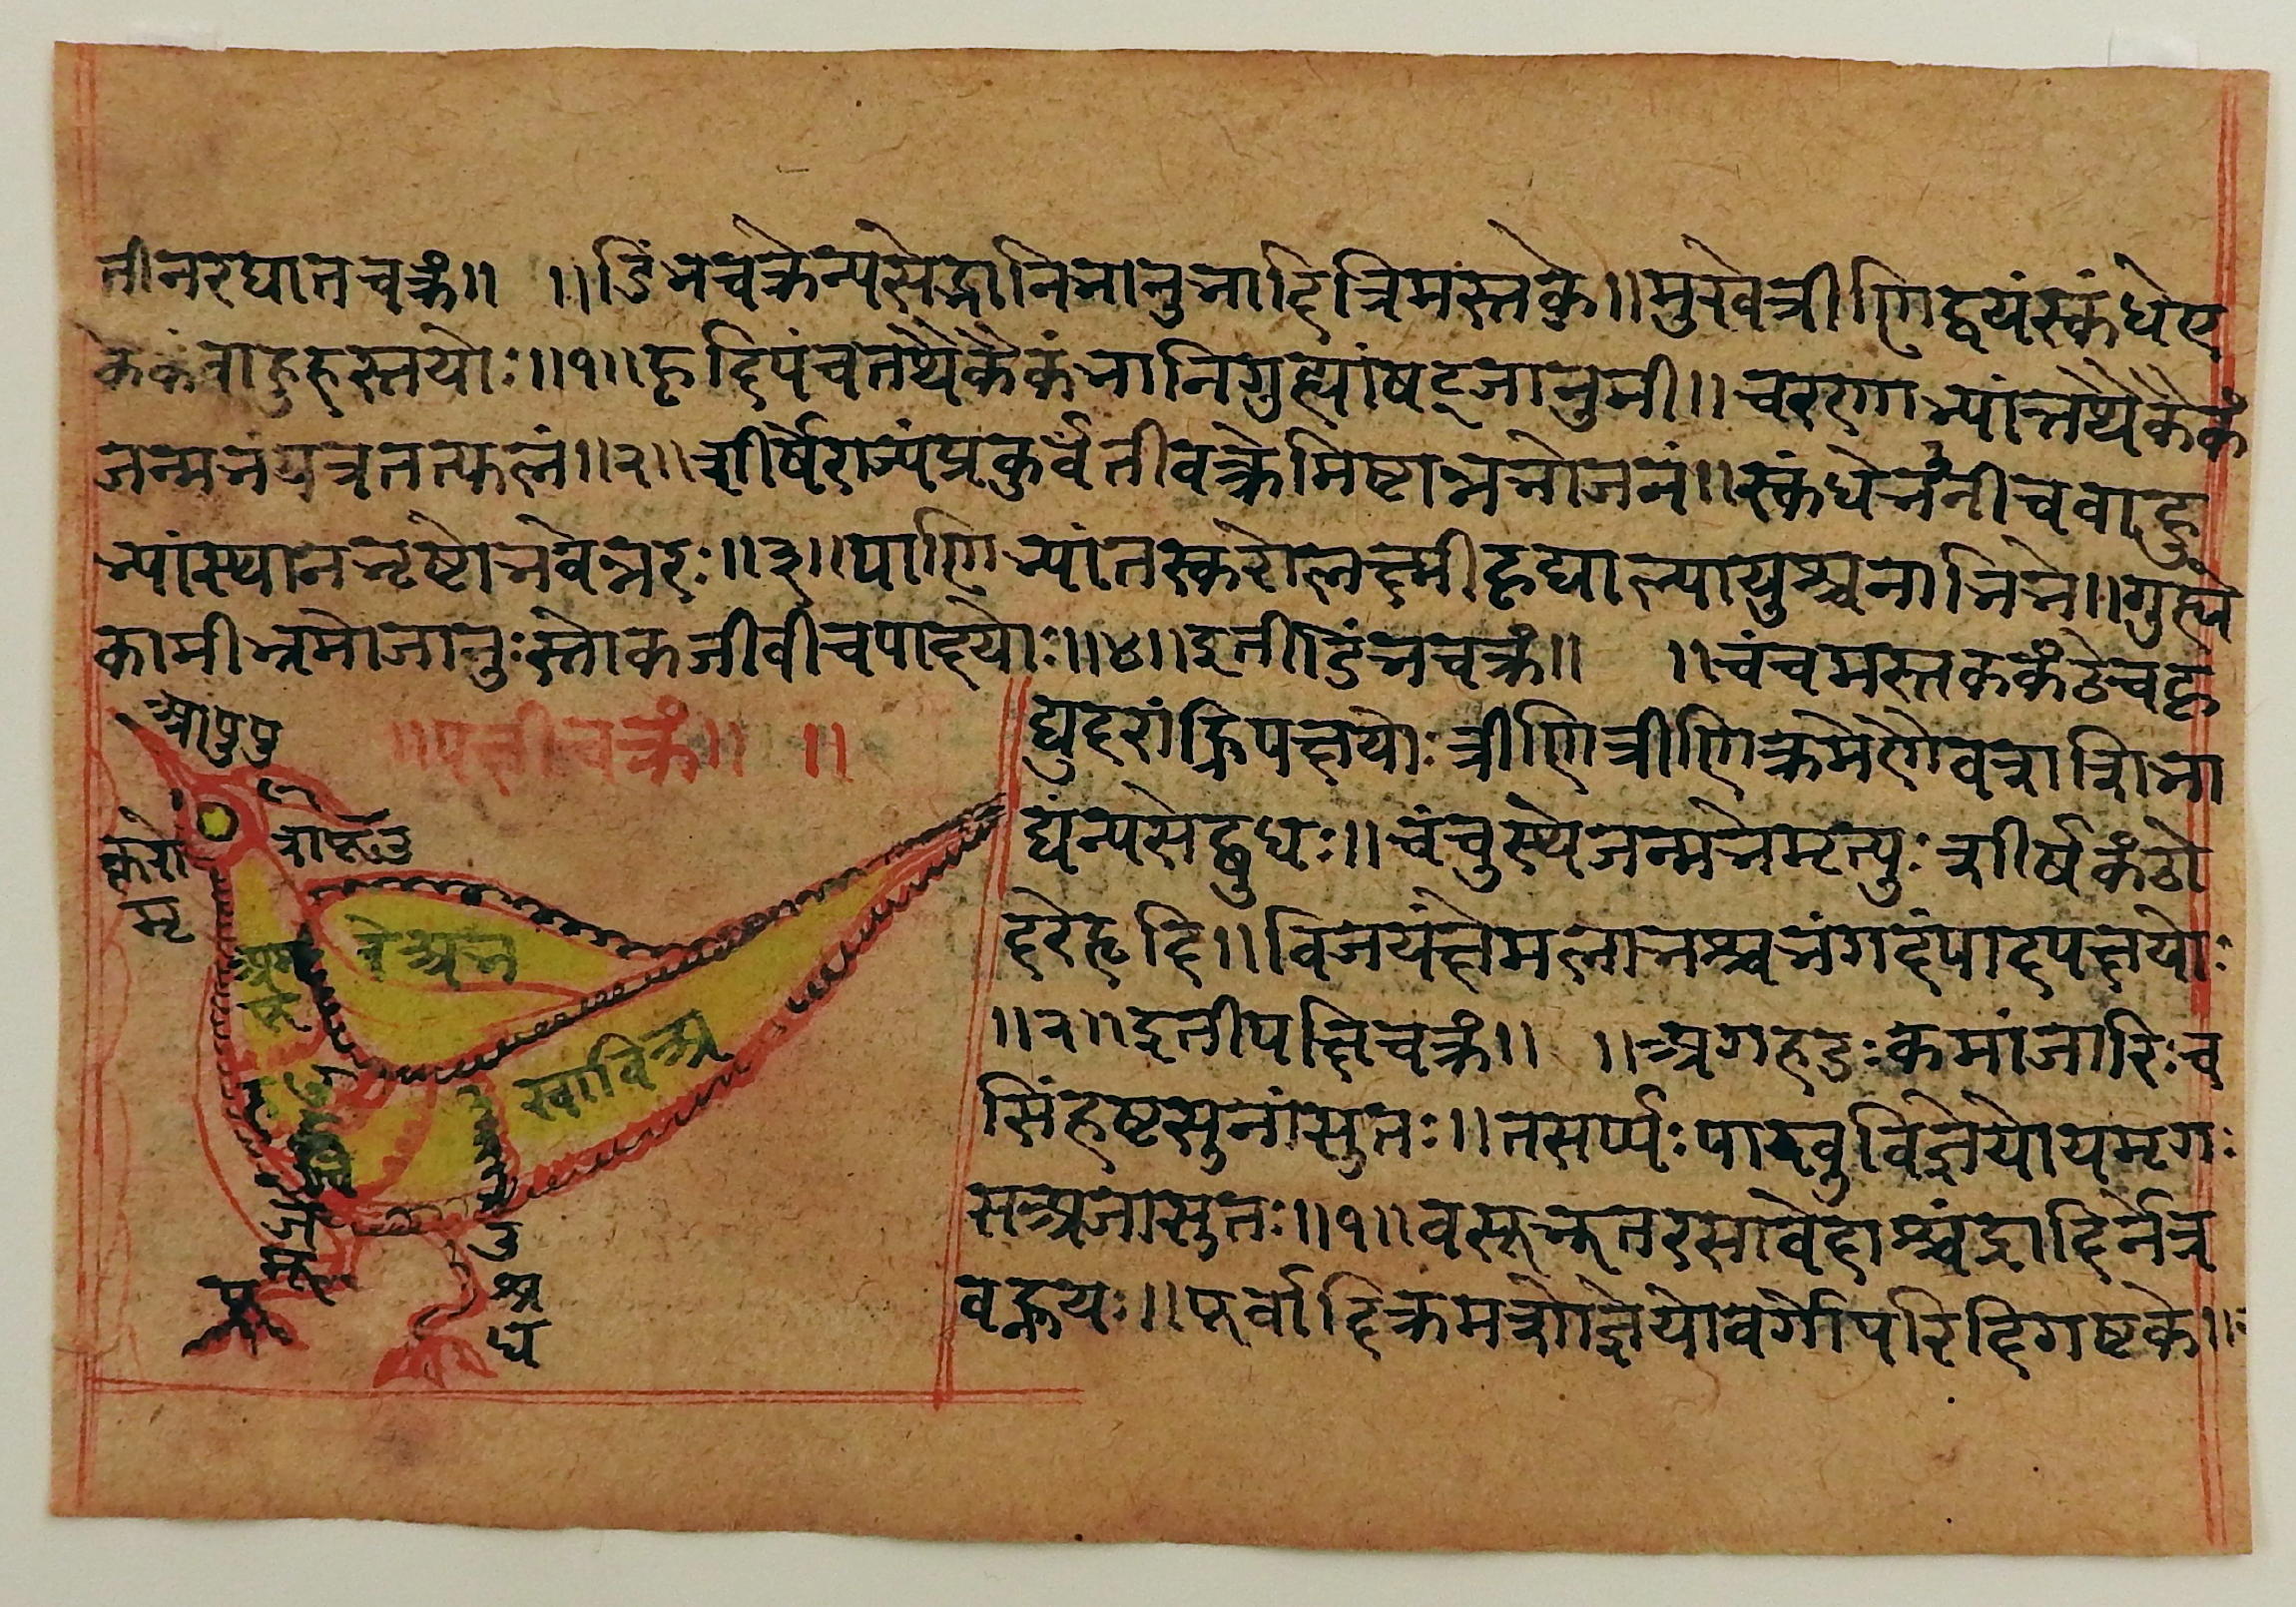 तीनरघातचक्रं॥ ॥डिंभचक्रेन्यसेद्भानिभानुभादित्रिमस्तके॥मुखेत्रीणिद्वयंस्कंधेए
केकंवाहुहस्तयोः॥१॥हृदिपंचतथैकैकंनाभिगुह्यांषट्जानुभी॥चरणाभ्यांतथैकैकं
जन्मभंयत्रतत्फलं॥२॥शीर्षेराज्यंप्रकुर्वंतीवक्त्रेमिष्टान्नभोजनं॥स्कंधेभंनीचवाहु
भ्यांस्थानभ्रष्टोभवेन्नरः॥३॥पाणिभ्यांतस्करोलक्ष्मीहृद्याल्पायुश्चनाभिभे॥गुह्ये
कामीभ्रमोजानुःस्तोकजीवीचपादयोः॥४॥इतीडिंभचक्रं॥ ॥चंचमस्तककंठेचहृ
द्युदरांह्रिपक्षयोः त्रीणित्रीणिक्रमेणैवशशिभा
द्यंन्यसेद्बुधः॥चंचुस्थेजन्मभेमृत्युः शीर्षकंठो
दरेहृदि॥विजयंक्षेमलाभश्चभंगदंपादपक्षयोः
॥२॥इतीपक्षिचक्रं॥ ॥अगरुडःकमांजारिःच
सिंहष्टसुनांसुतः॥तसर्प्पःपाखुविज्ञेयोयमृगः
सअजासुतः॥१॥वसूभूतरसावेदाश्चंद्रादिर्नेत्र
वह्नयः॥पूर्वादिक्रमशोज्ञेयोवर्गोपरिदिगष्टके॥
॥पक्षीचक्रं॥ ॥
आपुपु
करो
मृ
रे अभ
स्वाविअ
उ
श्र
ध